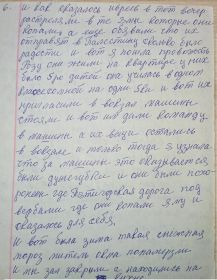 6. И как оказалось нереста в тот вечер
расстреляли в те ямы которые они
копали, а еще обявили что их
отправят в Палестину сколько было
радости и вот я пошла провожать
Розу они жили на квартире у них
было 5ро детей она училась в одном
классе со мной на один
и вот их
пригласили в вокзал машины
стояли и вот им дали команду
в машины а их вещи остались
в вокзале и только тогда я узнала
что за машины это оказывается
были душегубки и они были похо-
ронены где Пятигорская дорога под
вербами где они копали яму и
оказалось для себя.
И вот была зима такая снежная
мороз
окна позамерзли
и мы зал закрыли а находились на
кухне